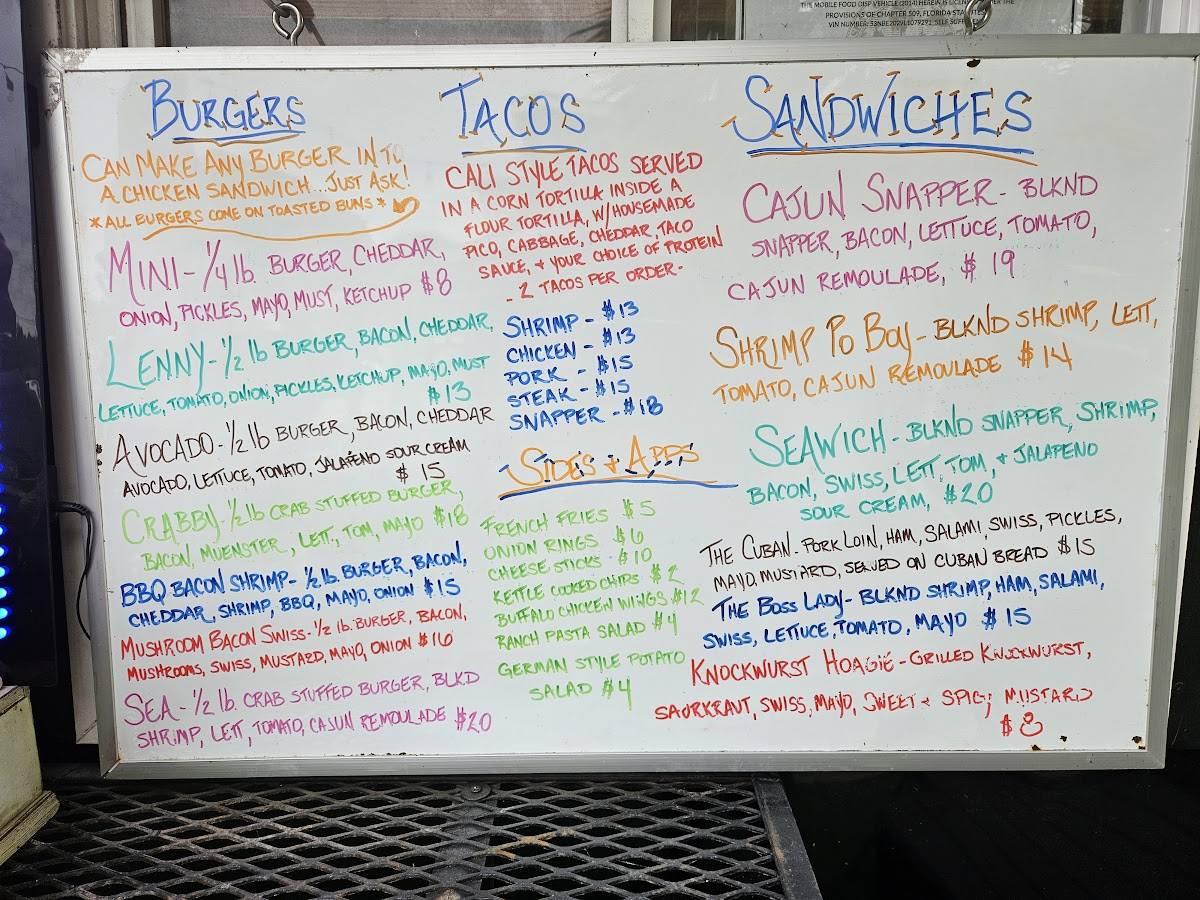 THE MOBILE FOOD DISP VEHICLE (2014) HEREIN IS LICEN
PROVISIONS OF CHAPTER 509, FLORIDA STA
VIN NUMBER:
BURGERS
CAN MAKE ANY BURGER INTO
A CHICKEN SANDWICH...JUST ASK!
*ALL BURGERS COME ON TOASTED BUNS*
MINI-1/4 lb. BURGER, CHEDDAR,
ONION, PICKLES, MAYO, MUST, KETCHUP $8
LENNY-1/2 lb BURGER, BACON, CHEDDAR,
LETTUCE, TOMATO, ONION, PICKLES, KETCHUP, MAYO, MUST
$13
AVOCADO-1/2 lb BURGER, BACON, CHEDDAR
AVOCADO, LETTUCE, TOMATO, JALAPEÑO SOUR CREAM
$15
CRABBY-1/2 lb CRAB STUFFED BURGER,
BACON, MUENSTER, LETT, TOM, MAYO $18
BBQ BACON SHRIMP-1/2 lb. BURGER, BACON,
CHEDDAR, SHRIMP, BBQ, MAYO, ONION $15
MUSHROOM BACON SWISS-1/2 lb. BURGER, BACON,
MUSHROOMS, SWISS, MUSTARD, MAYO, ONION $16
SEA-1/2 lb. CRAB STUFFED BURGER, BLKD
SHRIMP, LETT, TOMATO, CAJUN REMOULADE $20
TACOS
CALI STYLE TACOS SERVED
IN A CORN TORTILLA INSIDE A
FLOUR TORTILLA, W/HOUSEMADE
PICO, CABBAGE, CHEDDAR, TACO
SAUCE, + YOUR CHOICE OF PROTEIN
- 2 TACOS PER ORDER -
SHRIMP - $13
CHICKEN - $13
PORK - $15
STEAK - $15
SNAPPER - $18
SIDES + APPS
FRENCH FRIES $5
ONION RINGS $6
CHEESE STICKS $10
KETTLE COOKED CHIPS $2
BUFFALO CHICKEN WINGS $12
RANCH PASTA SALAD $4
GERMAN STYLE POTATO
SALAD $4
SANDWICHES
CAJUN SNAPPER - BLKND
SNAPPER, BACON, LETTUCE, TOMATO,
CAJUN REMOULADE, $19
SHRIMP PO BOY - BLKND SHRIMP, LETT,
TOMATO, CAJUN REMOULADE $14
SEAWICH - BLKND SNAPPER, SHRIMP,
BACON, SWISS, LETT, TOM, + JALAPENO
SOUR CREAM, $20
THE CUBAN - PORK LOIN, HAM, SALAMI, SWISS, PICKLES,
MAYO, MUSTARD, SERVED ON CUBAN BREAD $15
THE BOSS LADY - BLKND SHRIMP, HAM, SALAMI,
SWISS, LETTUCE, TOMATO, MAYO $15
KNOCKWURST HOAGIE - GRILLED KNOCKWURST,
SAURKRAUT, SWISS, MAYO, SWEET + SPICY MUSTARD
$8